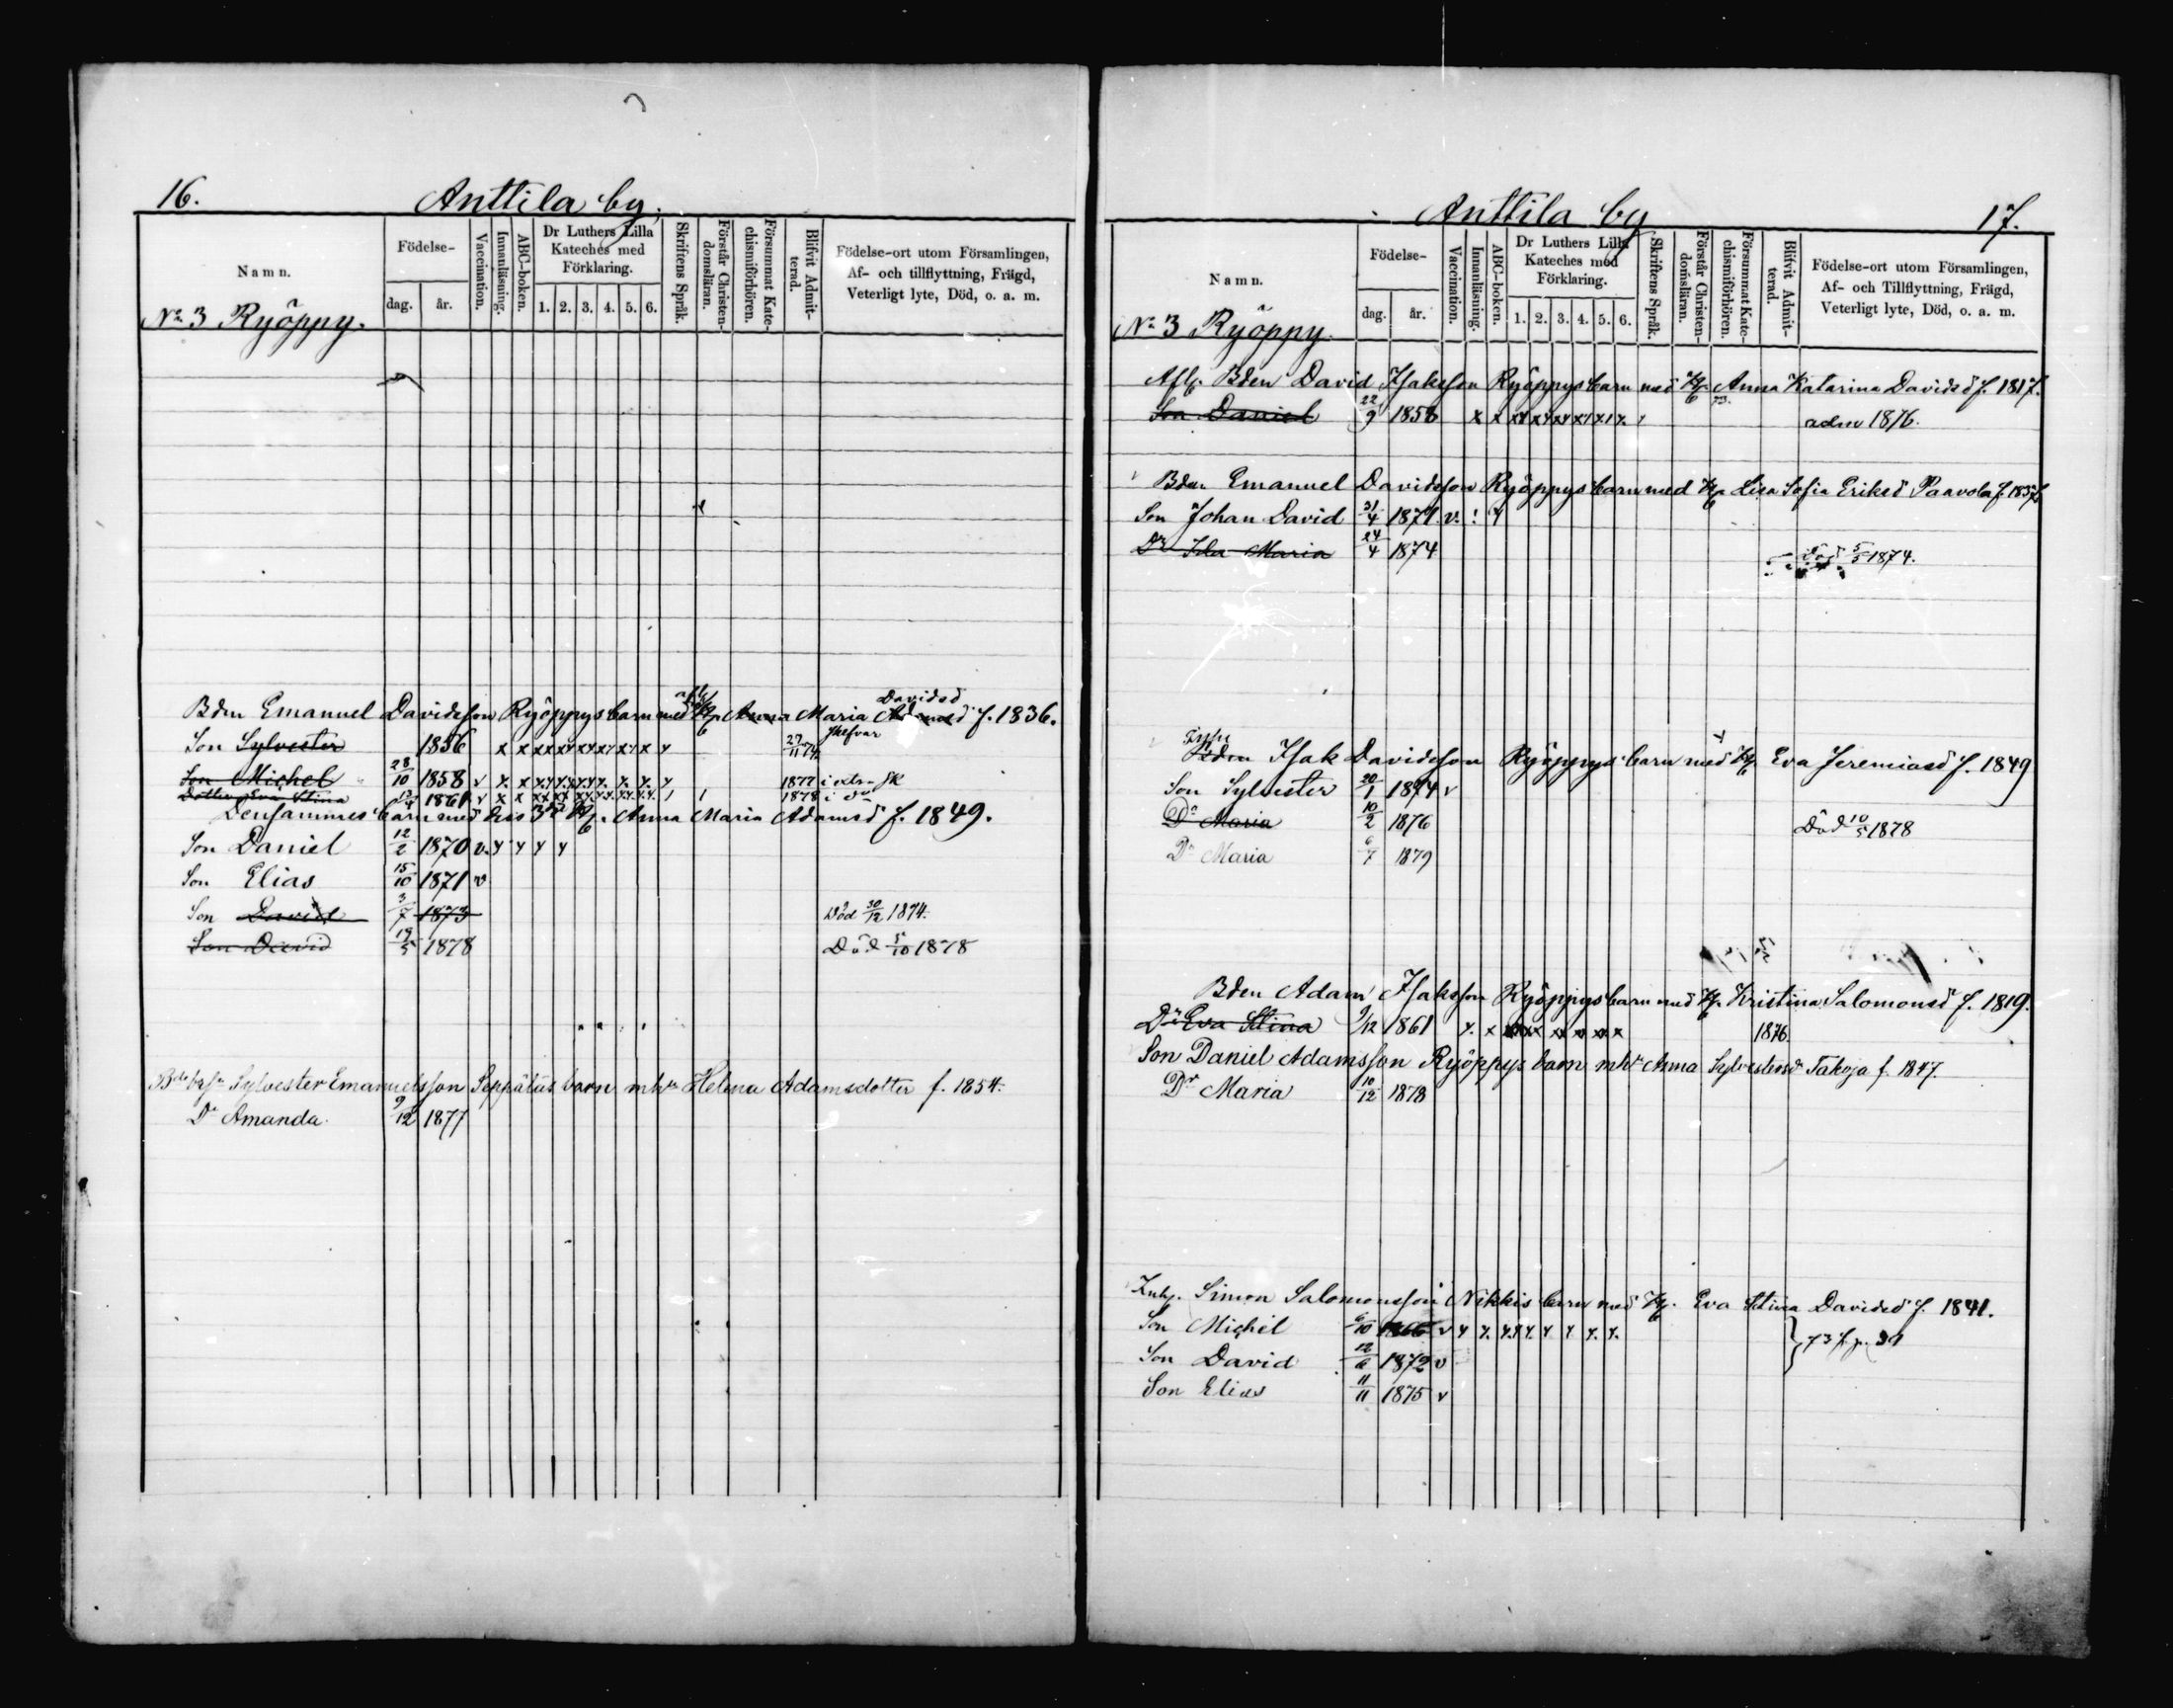 16.
Anttila by.
Namn.
Födelse-
dag.
år.
Vaccination.
Innanläsning.
ABC-boken.
Dr Luthers Lilla
Kateches med
Förklaring.
1. 2. 3. 4. 5. 6.
Skriftens Språk.
Förstår Christen-
domsläran.
Försummat Kate-
chismiförhören.
Blifvit Admit-
terad.
Födelse-ort utom Församlingen,
Af- och tillflyttning, Frägd,
Veterligt lyte, Död, o. a. m.
No 3 Ryöppy.
Bden Emanuel Davidsson Ryöppys barn med afl. Anna Maria Davidsd f. 1836.
Son Sylvester 1856 x x xx xx xx x x x x 27/11 74
Son Michel 28/10 1858 v 1877
Dotter Eva Stina 1861 v x x 1 1 1878
Densammes barn med dess 3de Anna Maria Adamsd f. 1849.
Son Daniel 12/2 1870 v.
Son Elias 15/10 1871 v
Son David 3/7 1873 Död 30/12 1874.
Son David 19/5 1878 Död 5/10 1878
Sylvester Emanuelsson Seppäläs barn mhu Helena Adamsdotter f. 1854.
Dr Amanda. 9/12 1877
Anttila by
17.
Namn.
Födelse-
dag.
år.
Vaccination.
Innanläsning.
ABC-boken.
Dr Luthers Lilla
Kateches med
Förklaring.
1. 2. 3. 4. 5. 6.
Skriftens Språk.
Förstår Christen-
domsläran.
Försummat Kate-
chismiförhören.
Blifvit Admit-
terad.
Födelse-ort utom Församlingen,
Af- och Tillflyttning, Frägd,
Veterligt lyte, Död, o. a. m.
No 3 Ryöppy
Afl. Bden David Isaksson Ryöppys barn med Anna Katarina Davidsd f. 1817.
Son Daniel 22/9 1858 adm 1876.
Bden Emanuel Davidsson Ryöppys barn med Lisa Sofia Eriksd Paavola f. 1837
Son Johan David 21/4 1871 v.
Dr Ida Maria 24/4 1874 död 5/5 1874.
Bden Isak Davidsson Ryöppys barn med Eva Jeremiasd f. 1849
Son Sylvester 20/1 1874 v
Dr Maria 10/2 1876 Död 10/5 1878
Dr Maria 6/7 1879
Bden Adam Isaksson Ryöppys barn med Kristina Salomonsd f. 1819.
Dr Eva Stina 9/12 1861 1876
Son Daniel Adamsson Ryöppys barn mhu Anna Sylvestersd Takoja f. 1847.
Dr Maria 10/12 1878
Inh. Simon Salomonsson Nikkis barn med Eva Stina Davidsd f. 1841.
Son Michel 6/10 1866 v
73 f. p. 31
Son David 12/6 1872 v
Son Elias 11/11 1875 v